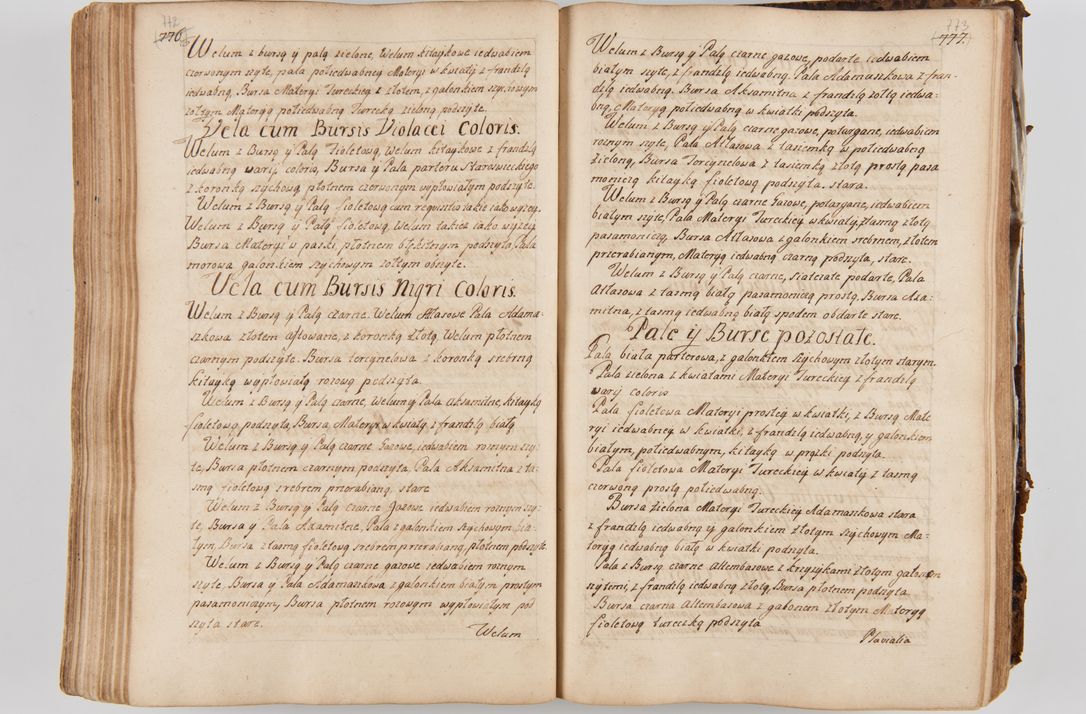 772
776.
Welum z bursą y palą zielone, Welum kitaykowe iedwabiem
czerwonym szyte, pala połiedwabney Materyi w kwiaty z frandzlą
iedwabną, Bursa Materyi Tureckiey z złotem, z galonkiem szychowym
żołtym Materyą połiedwabną Turecką zieloną podszyte.
Vela cum Bursis Violacei Coloris.
Welum z Bursą y Palą Fioletową, Welum kitaykowe z frandzlą
iedwabną warij coloris, Bursa y Pala parteru Staroswieckiego
z koronką szychową, płotnem czerwonym wypłowiałym podszyte.
Welum z Bursą y Palą fioletową cum requisitis takie iako wyzey.
Welum z Bursą y Palą fioletową, Welum takież iako wyżey
Bursa Materyi w paski, płotnem błękitnym podszyta, Pala
morowa galonkiem szychowym żołtym obszyte.
Vela cum Bursis Nigri Coloris.
Welum z Bursą y Palą czarne. Welum Atłasowe Pala Adama=
szkowa złotem aftowane, z koronką złotą, Welum płotnem
czarnym podszyte. Bursa tercynelowa z koronką srebrną
kitayką wypłowiałą rozową podszyta.
Welum z Bursą y Palą czarne, Welum y Pala aksamitne, kitayką
fioletową podszyta, Bursa Materyi w kwiaty, z frandzlą białą
Welum z Bursą y Palą czarne Gazowe, iedwabiem roznym szy=
te, Bursa płotnem czarnym podszyta, Pala Aksamitna z ta=
smą fioletową srebrem przerabianą, stare
Welum z Bursą y Palą czarne gazowe iedwabiem roznym szy=
te, Bursa y Pala Axamitne, Pala z galonkiem szychowym bia=
łym, Bursa z tasmą fioletową srebrem przerabianą, płotnem podszyte.
Welum z Bursą y Palą czarne gazowe iedwabiem roznym
szyte. Bursa y Pala Adamaszkowa z galonkiem białym prostym
pasamoniczym, Bursa płotnem rozowym wypłowiałym pod
szyta stare.
Welum
773
777.
Welum z Bursą y Palą czarne gazowe, podarte iedwabiem
białym szyte, z frandzlą iedwabną. Pala Adamaszkowa z fran=
dzlą iedwabną. Bursa Aksamitna z frandzlą żołtą iedwa=
bną, Materyą połiedwabną w kwiatki podszyta.
Welum z Bursą y Palą czarne gazowe, potargane, iedwabiem
roznym szyte, Pala Atłasowa z tasiemką w połiedwabną
zieloną, Bursa Tercynelowa z tasiemką złotą prostą pasa
moniczą kitayką fioletową podszyta. stara.
Welum z Bursą y Palą czarne Gazowe, potargane, iedwabiem
białym szyte, Pala Materyi Tureckiey w kwiaty, z tasmą złotą
pasamoniczą, Bursa Atłasowa z galonkiem srebrnem, złotem
przerabianym, Materyą iedwabną czarną podszyta, stare.
Welum z Bursą y Palą czarne, siatczate podarte, Pala
Atłasowa z tasmą białą pasamoniczą prostą, Bursa Axa=
mitna, z tasmą iedwabną białą spodem obdarte stare.
Pale ij Burse pozostałe.
Pala biała parterowa, z galonkiem szychowym złotym starym.
Pala zielona z kwiatami Materyi Tureckiey z frandzlą
warij coloris
Pala fioletowa Materyi prostey w kwiatki, z Bursą Mate
ryi iedwabney w kwiatki, z frandzlą iedwabną, y galonkiem
białym, połiedwabnym, kitayką w prążki podszyta.
Pala fioletowa Materyi Tureckiey w kwiaty z tasmą
czerwoną prostą połiedwabną.
Bursa zielona Materyi Tureckiey Adamaszkowa stara
z frandzlą iedwabną y galonkiem złotym szychowym Ma=
teryą iedwabną białą w kwiatki podszyta.
Pala z Bursą czarne altembasowe z krzyżykami złotym galonem
szytemi, z frandzlą iedwabną złotą, Bursa płotnem podszyta
Bursa czarna altembasowa z galonem złotym Materyą
fioletową turecką podszyta
Pluvialia